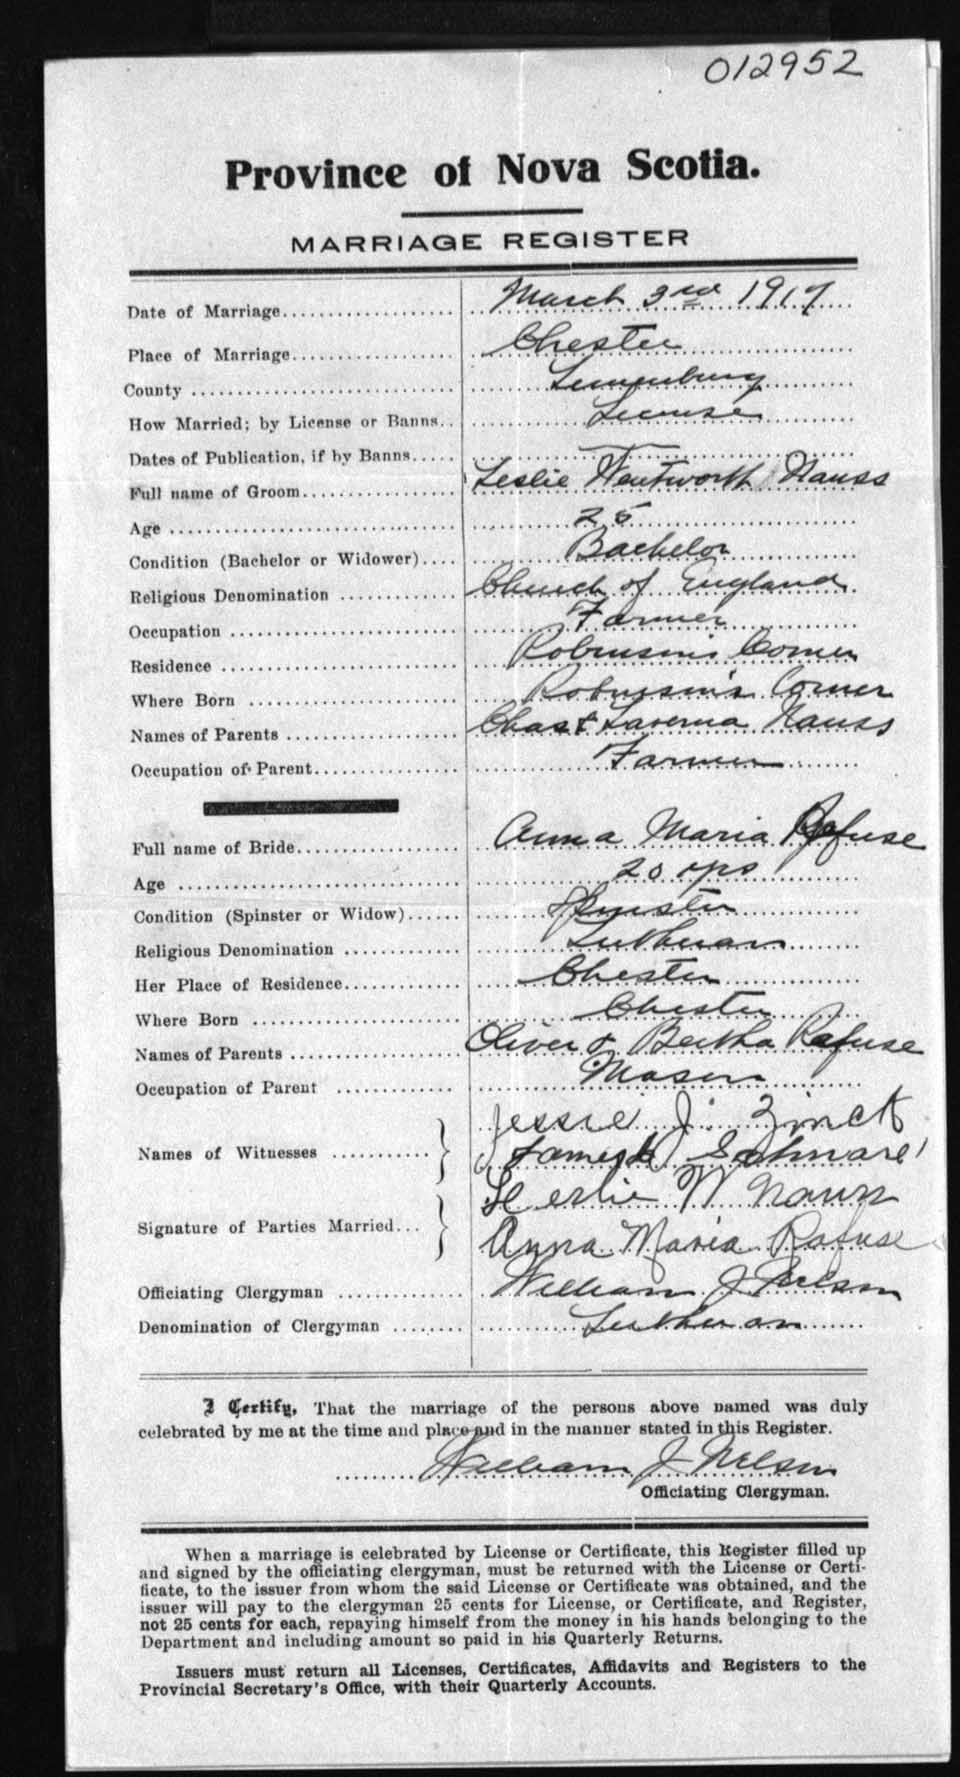 012952
Province of Nova Scotia.
MARRIAGE REGISTER
Date of Marriage.................... March 3rd 1917
Place of Marriage................... Chester
County .............................. Lunenburg
How Married; by License or Banns.. License
Dates of Publication, if by Banns.....
Full name of Groom.................. Leslie Wentworth Nauss
Age ................................. 25
Condition (Bachelor or Widower).... Bachelor
Religious Denomination ............. Church of England
Occupation .......................... Farmer
Residence ........................... Robinson's Corner
Where Born ........................ Robinson's Corner
Names of Parents .................... Chas & Laverna Nauss
Occupation of Parent................. Farmer
Full name of Bride................... Anna Maria Rafuse
Age ................................. 20 yrs
Condition (Spinster or Widow)...... Spinster
Religious Denomination ............. Lutheran
Her Place of Residence............. Chester
Where Born ........................ Chester
Names of Parents .................... Oliver & Bertha Rafuse
Occupation of Parent ............. Mason
Jessie J. Zinck
Names of Witnesses ........... } James
Leslie W Nauss
Signature of Parties Married... }
Anna Maria Rafuse
Officiating Clergyman .............. William J Nelson
Denomination of Clergyman ........ Lutheran
I Certify, That the marriage of the persons above named was duly
celebrated by me at the time and place and in the manner stated in this Register.
William J Nelson
Officiating Clergyman.
When a marriage is celebrated by License or Certificate, this Register filled up
and signed by the officiating clergyman, must be returned with the License or Certi-
ficate, to the issuer from whom the said License or Certificate was obtained, and the
issuer will pay to the clergyman 25 cents for License, or Certificate, and Register,
not 25 cents for each, repaying himself from the money in his hands belonging to the
Department and including amount so paid in his Quarterly Returns.
Issuers must return all Licenses, Certificates, Affidavits and Registers to the
Provincial Secretary's Office, with their Quarterly Accounts.